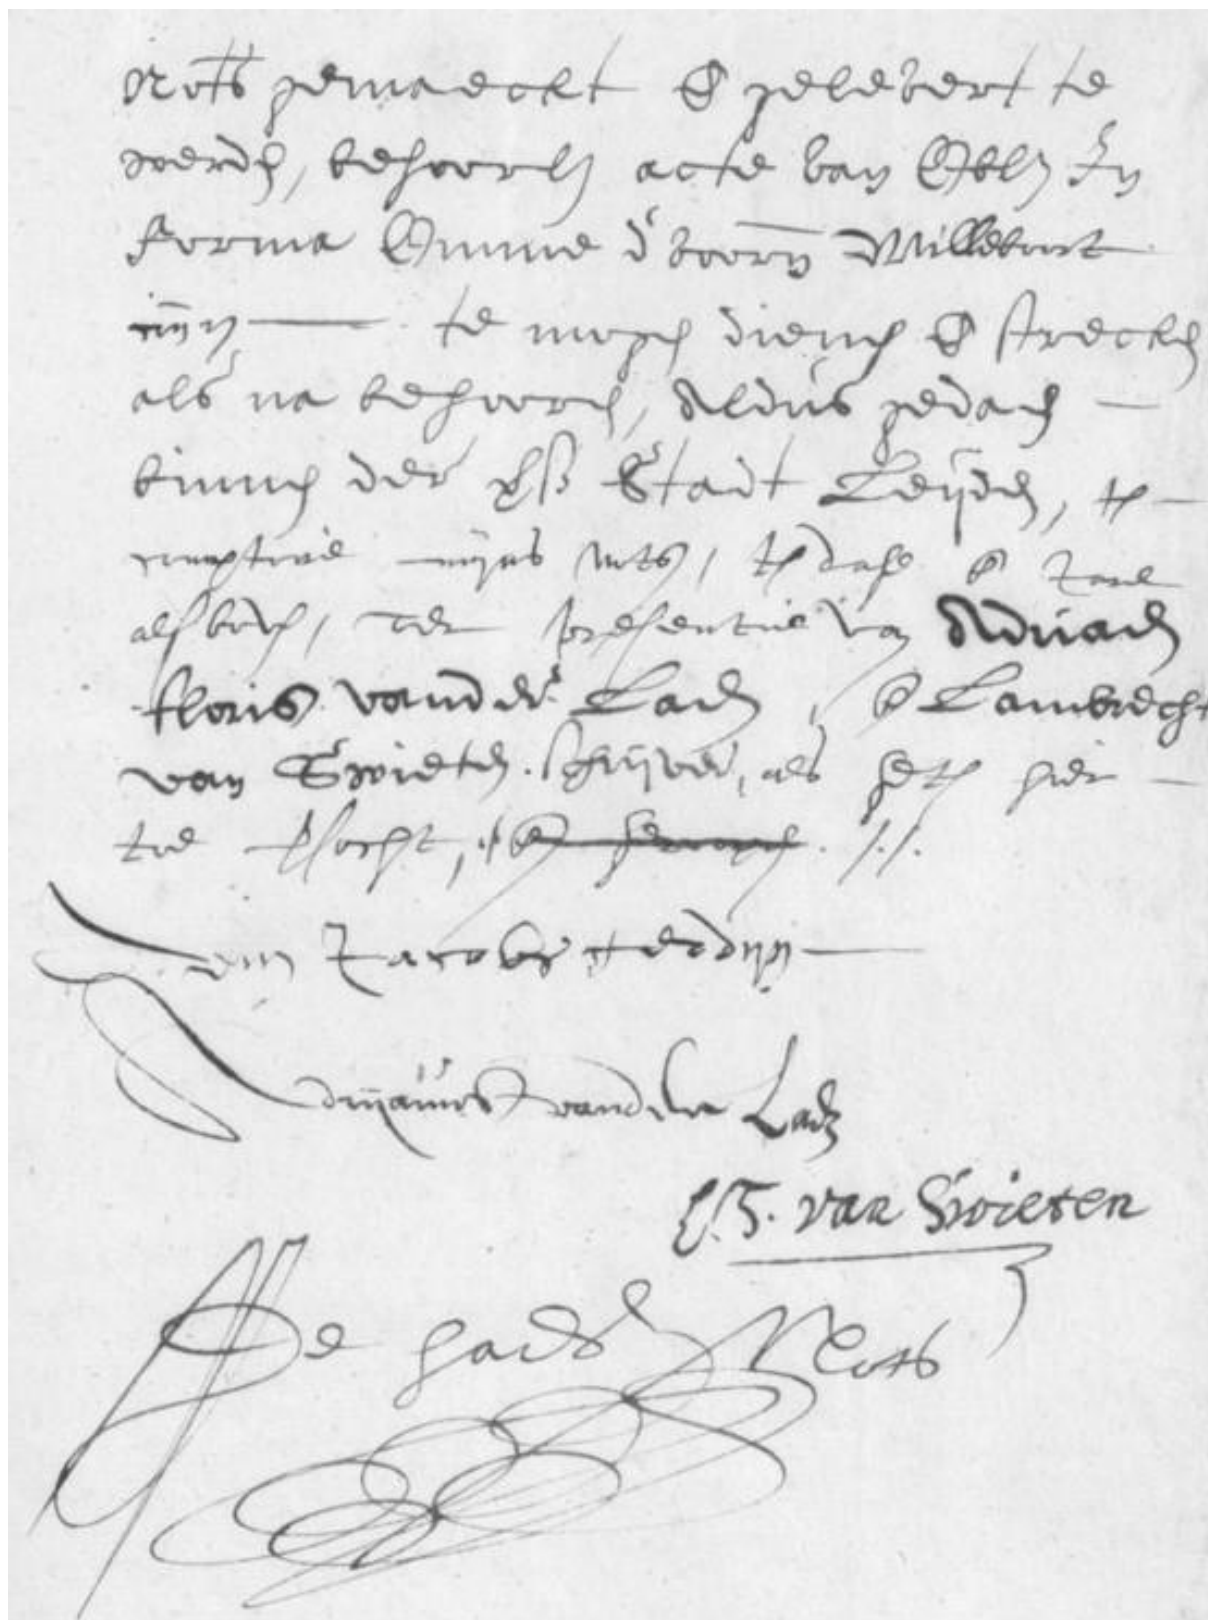 Nots gemaeckt & gelevert te
werden, behoorl. acte van Obl. In
forma Omme d'voorn Willeboort
te mogen dienen & strecken
als na behooren, Aldus gedaen
binnen der Stadt Leijden, ten
mijns nots, ten dage & Jare
als boven, ter presentie van Adriaen
Floris vander Laen, & Lambrecht
van Swieten. schrijver, als geth. hier
toe versocht,
Jacobs
Adrijanus vander Laen
L. J. van Swieten
Nots